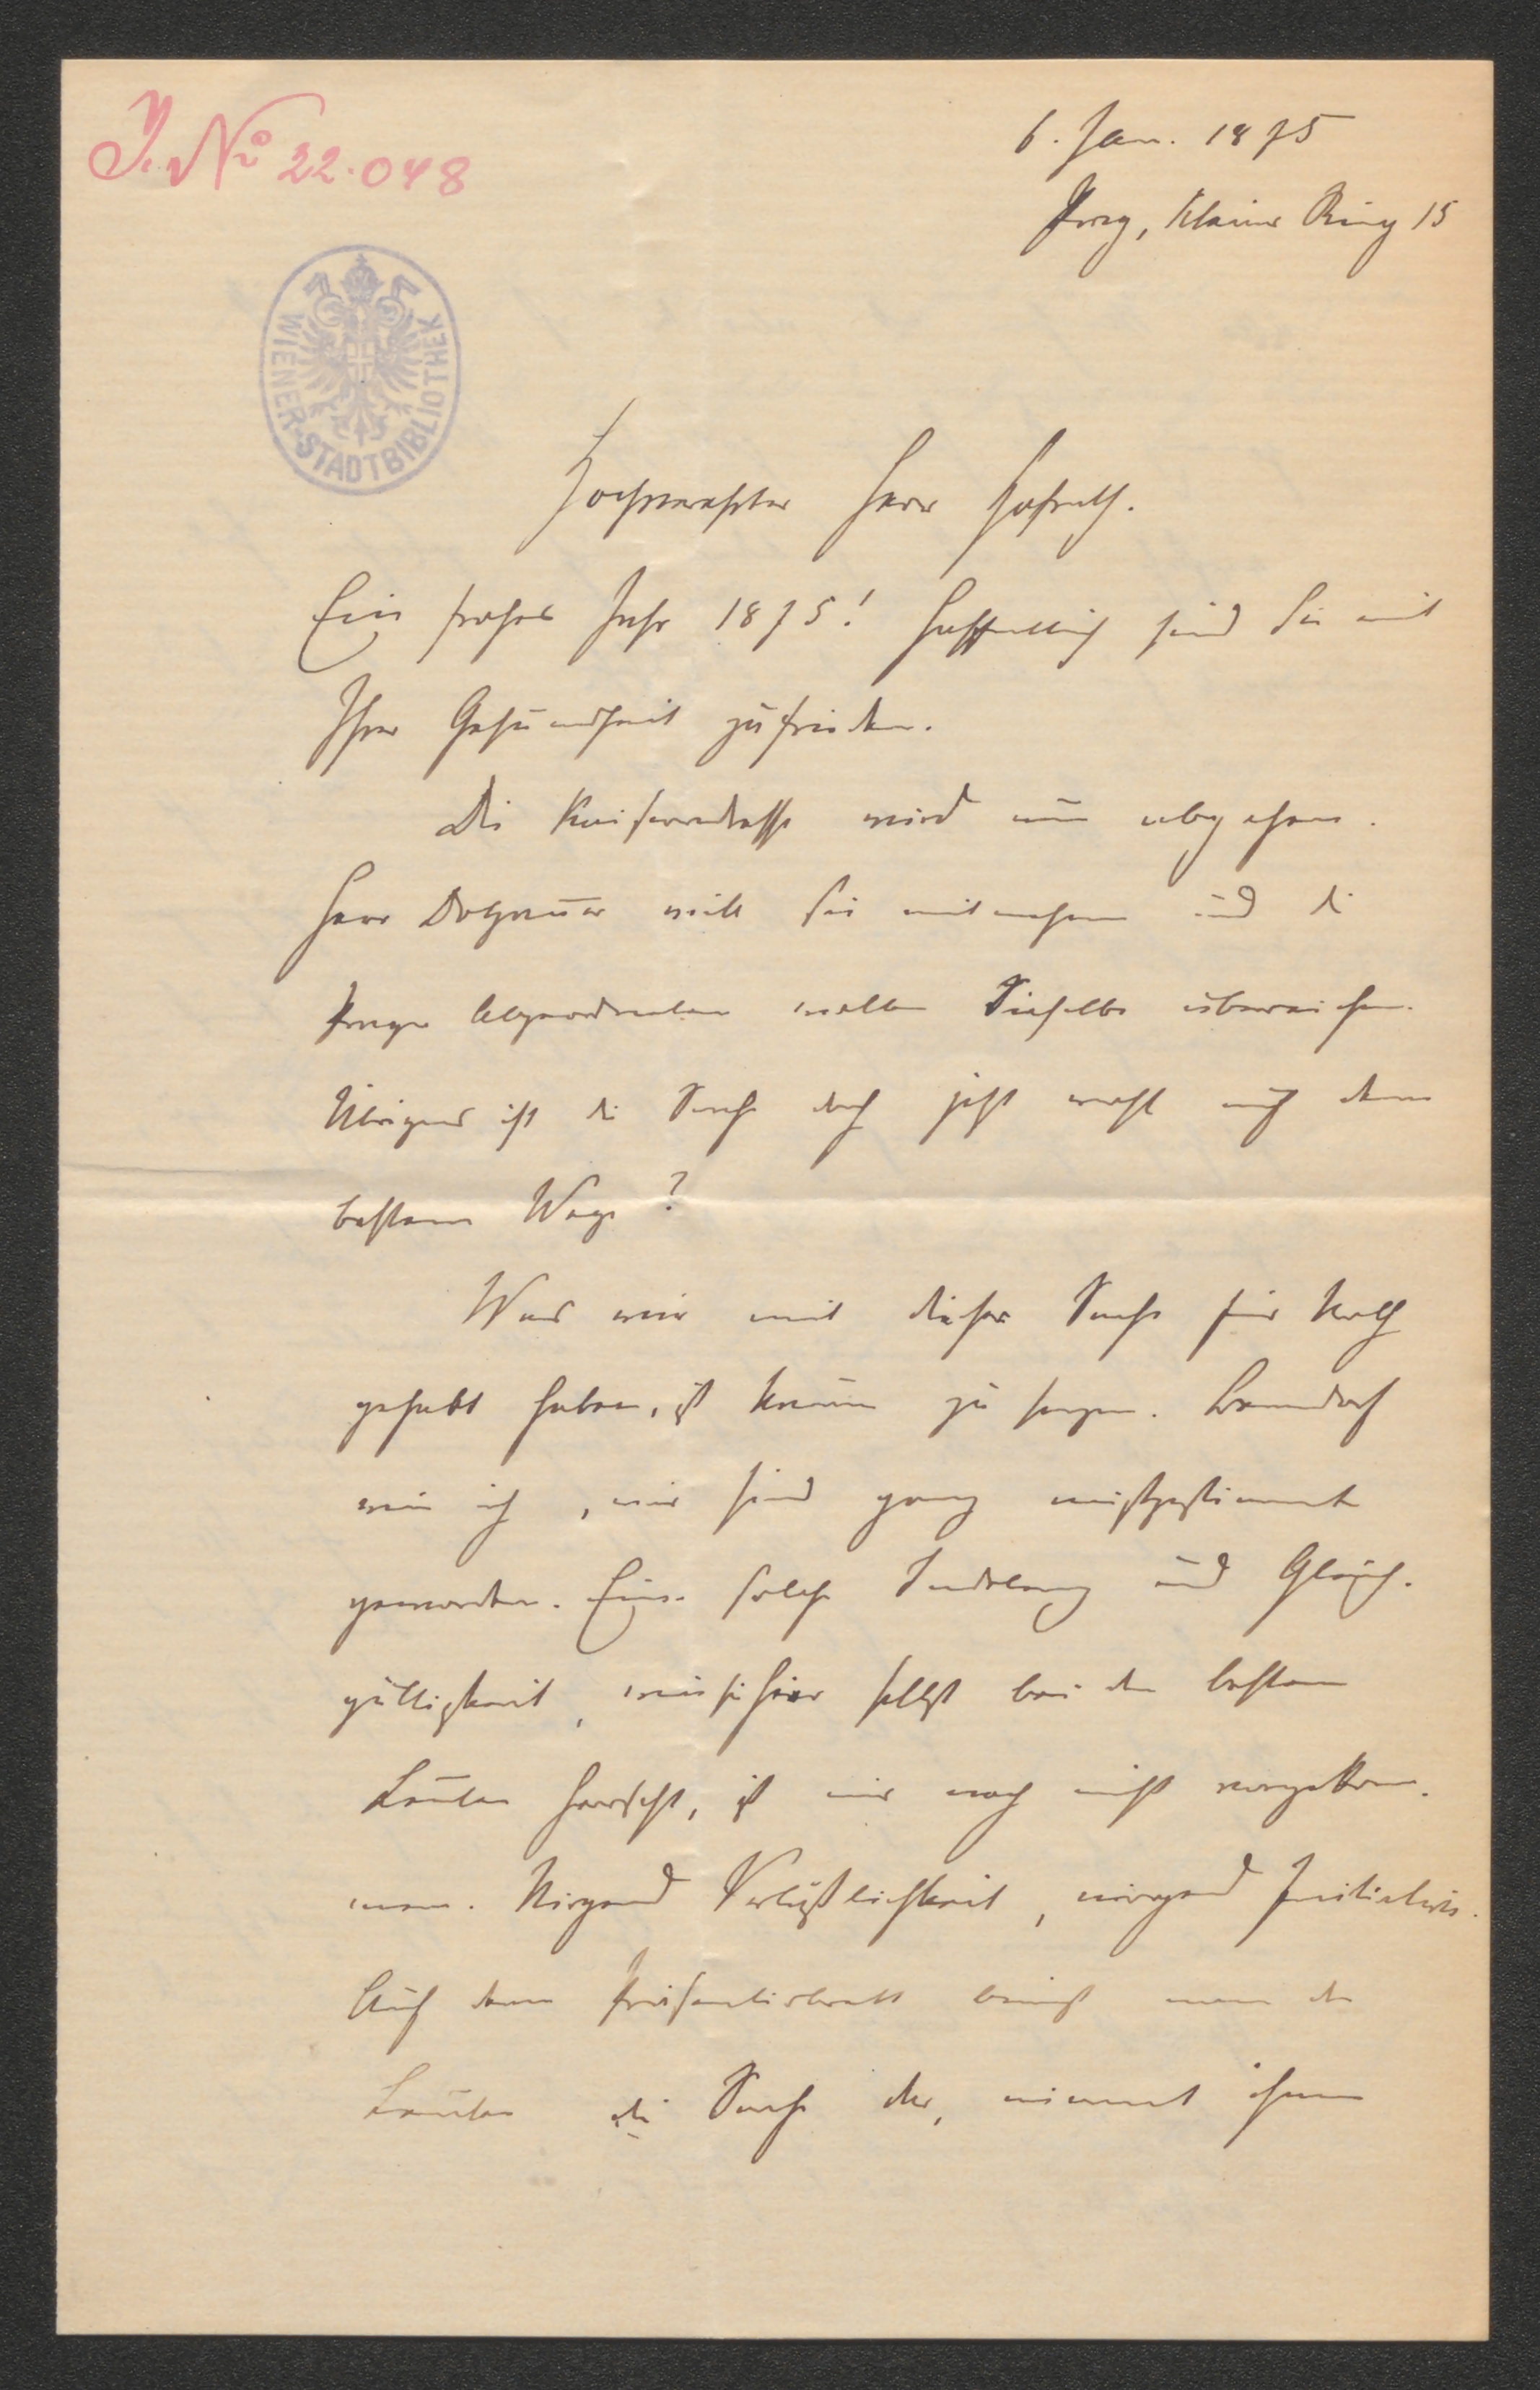 J. No 22.048
6. Jan. 1875
Prag, Kleiner Ring 15
WIENER-STADTBIBLIOTHEK
Hochverehrter Herr Hofrath.
Ein frohes Jahr 1875! Hoffentlich sind Sie mit
Ihrer Gesundheit zufrieden.
Die Kaiseradresse wird nun abgehen.
Herr Dotzauer will sie mitnehmen und die
Prager Abgeordneten wollen dieselbe überreichen.
Übrigens ist die Sache doch jetzt wohl auf dem
besten Wege?
Was wir mit dieser Sache für Noth
gehabt haben, ist kaum zu sagen. Benndorf
wie ich, wir sind ganz mißgestimmt
geworden. Eine solche und Gleich-
gültigkeit, wie sie hier selbst bei den besten
Leuten herrscht, ist mir noch nicht vorgekom-
men. Nirgend Verläßlichkeit, nirgend Initiative.
Auf dem Präsentirbrett bringt man den
Leuten die Sache dar, nimmt ihnen